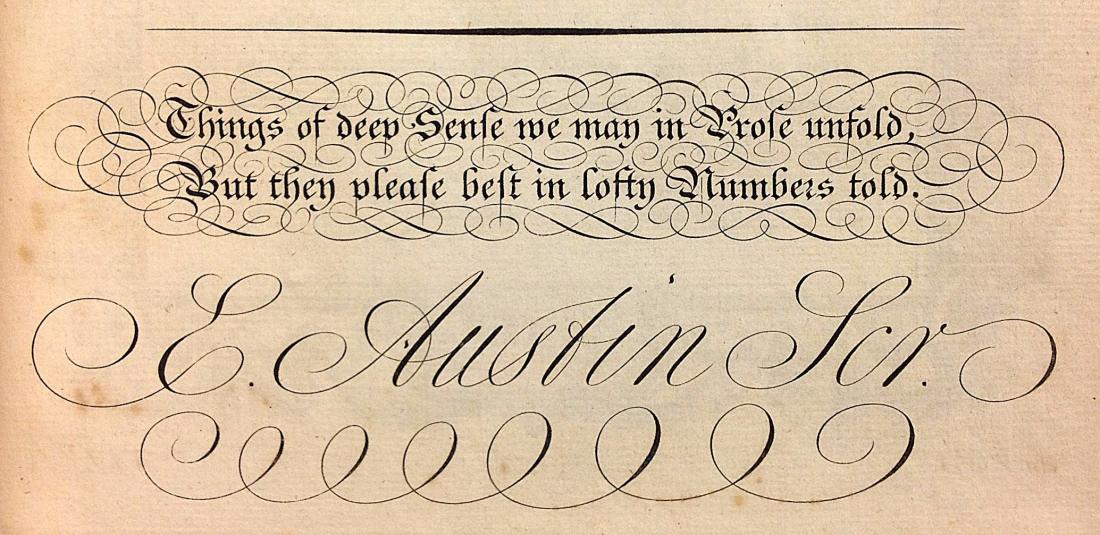 Things of deep Senſe we may in Proſe unfold,
But they pleaſe beſt in lofty Numbers told.
E. Austin Scr.